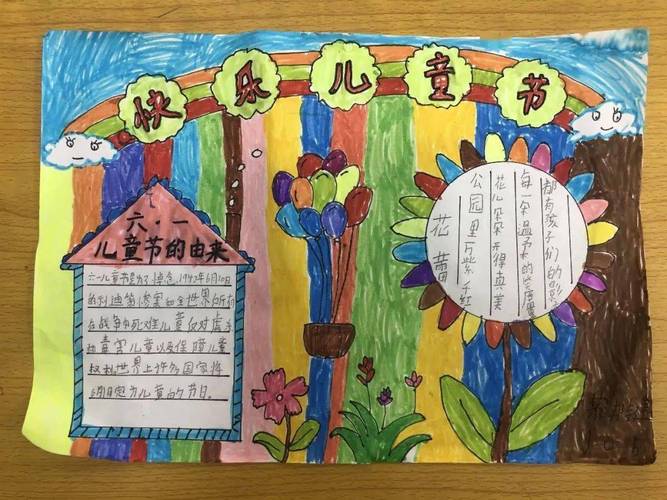 快乐儿童节
六·一
儿童节的由来
六一儿童节是为了悼念1942年6月10日
的利迪策惨案和全世界所有
在战争中死难儿童反对虐杀
和毒害儿童以及保障儿童
权利世界上许多国家将
6月1日定为儿童的节日。
花蕾
公园里万紫千红
花儿朵朵开得真美
每一朵温柔的笑靥里
都有孩子们的影